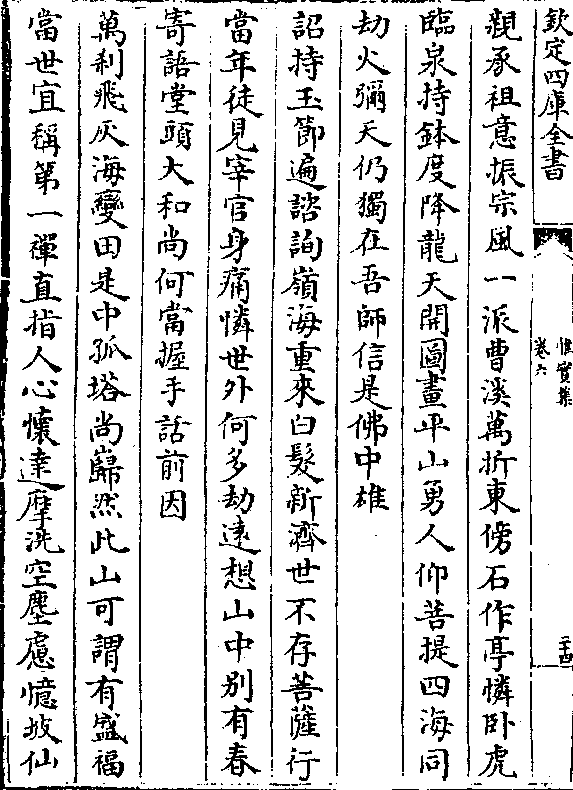 欽定四庫全書
惟實集
卷六
二十四
親承祖意振宗風一派曹溪萬折東傍石作亭憐卧虎
臨泉持鉢度降龍天開圖畫平山勇人仰菩提四海同
劫火彌天仍獨在吾師信是佛中雄
詔持玉節遍諮詢嶺海重來白髮新濟世不存菩薩行
當年徒見宰官身痛憐世外何多劫遠想山中别有春
寄語堂頭大和尚何當握手話前因
萬刹飛灰海變田是中孤塔尚巋然此山可謂有盛福
當世宜稱第一禪直指人心懷達摩洗空塵慮憶坡仙